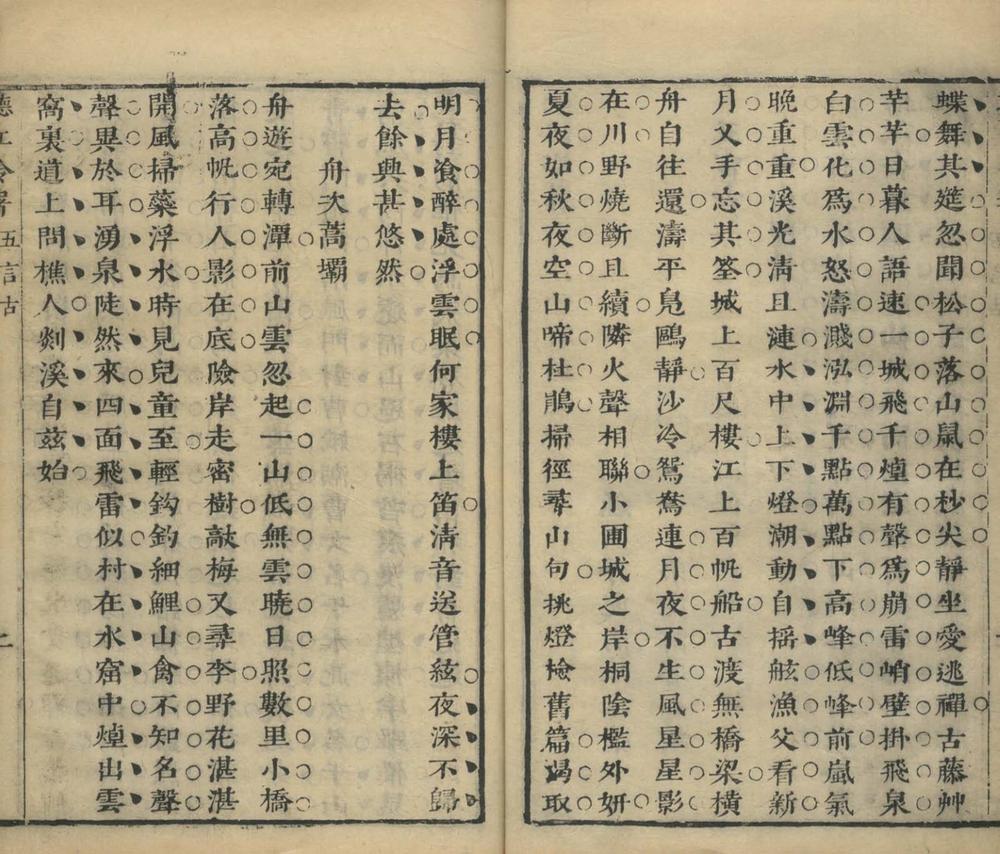 蝶舞其筵忽聞松子落山鼠在杪尖靜坐愛逃禪古藤艸
芊芊日暮人語速一城飛千煌有聲爲崩雷峭壁掛飛泉
白雲化爲水怒濤濺泓淵千點萬點下高峰低峰前嵐氣
晚重重溪光淸且漣水中上下燈潮動自搖舷漁父看新
月又手忘其筌城上百尺樓江上百帆船古渡無橋梁橫
舟自往還濤平鳧鷗靜沙冷鴛鴦連月夜不生風星星影
在川野燒斷且續隣火聲相聯小圃城之岸桐陰檻外妍
夏夜如秋夜空山啼杜鵑掃徑尋山句挑燈檢舊篇渴取
明月飡醉處浮雲眠何家樓上笛淸音送管絃夜深不歸
去餘興甚悠然
舟次蒿壩
舟遊宛轉潭前山雲忽起一山低無雲曉日照數里小橋
落高帆行人影在底險岸走密樹敲梅又尋李野花湛湛
開風掃藥浮水時見兒童至輕鈎釣細鯉山禽不知名聲
聲異於耳湧泉陡然來四面飛雷似村在水窟中煌出雲
窩裏道上問樵人剡溪自兹始
五言古